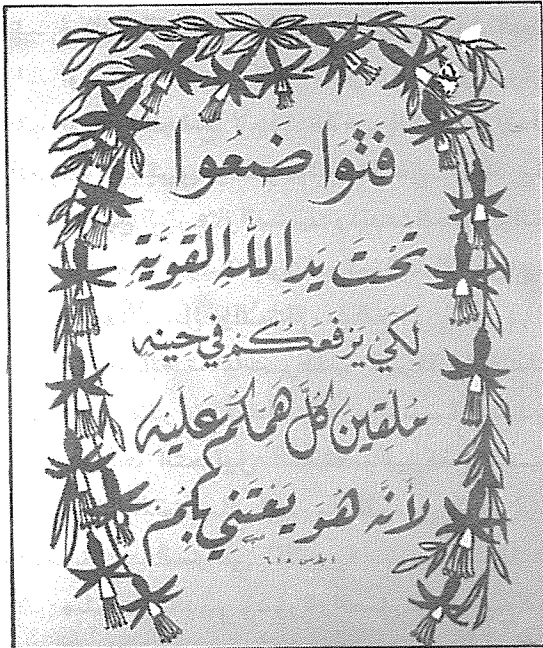 فَتَوَاضَعُوا
تَحْتَ يَدِ اللهِ القَوِيَّةِ
لِكَيْ يَرْفَعَكُمْ فِي حِينِهِ
مُلْقِينَ كُلَّ هَمِّكُمْ عَلَيْهِ
لأَنَّهُ هُوَ يَعْتَنِي بِكُمْ